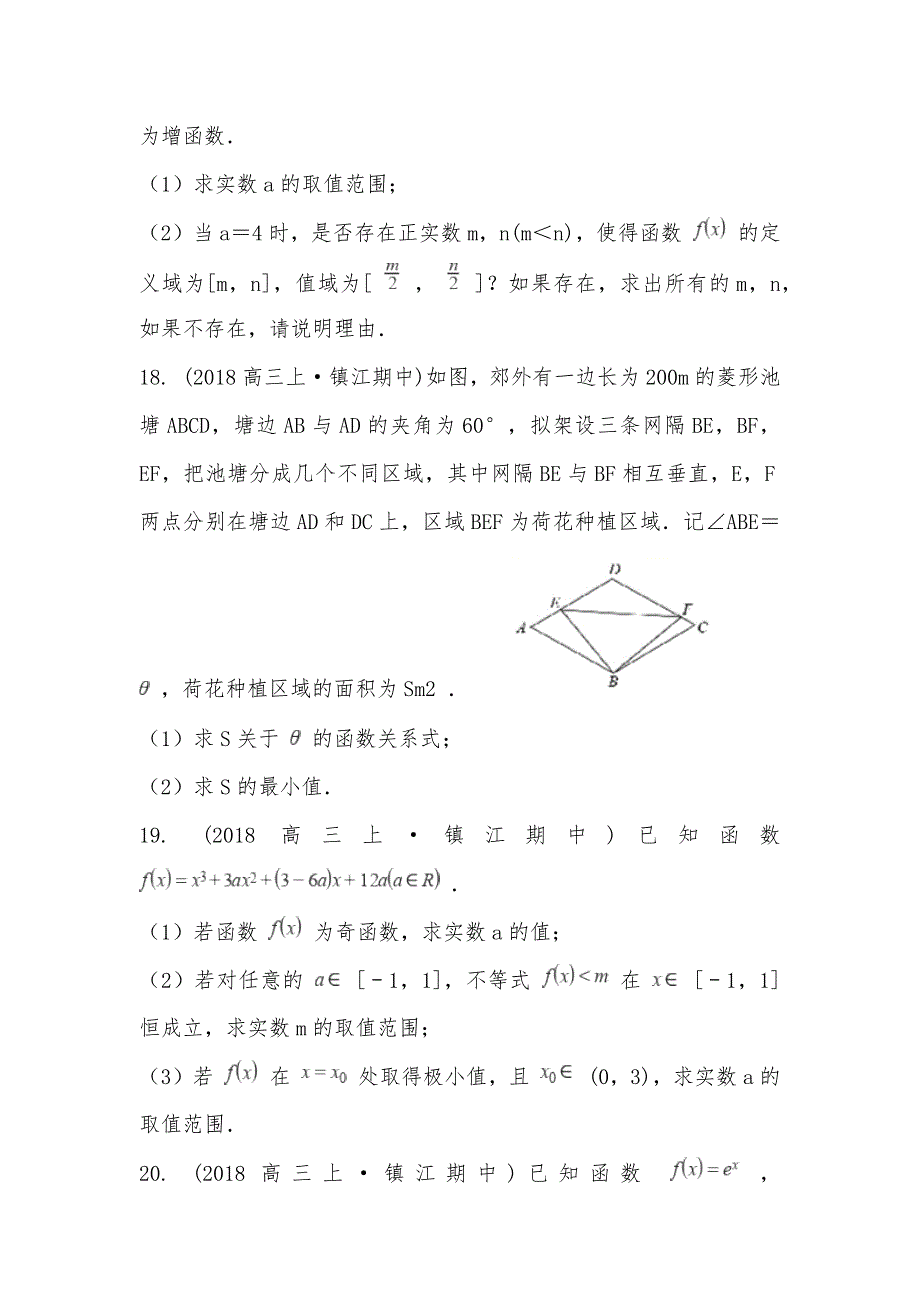 为增函数．
（1）求实数a的取值范围；
（2）当a＝4时，是否存在正实数m，n(m＜n)，使得函数 f(x) 的定
义域为[m，n]，值域为[ m/2 ， n/2 ]？如果存在，求出所有的m，n，
如果不存在，请说明理由．
18. (2018高三上·镇江期中)如图，郊外有一边长为200m的菱形池
塘ABCD，塘边AB与AD的夹角为60°，拟架设三条网隔BE，BF，
EF，把池塘分成几个不同区域，其中网隔BE与BF相互垂直，E，F
两点分别在塘边AD和DC上，区域BEF为荷花种植区域．记∠ABE＝
D
E
F
A
C
B
θ ，荷花种植区域的面积为Sm2 ．
（1）求S关于 θ 的函数关系式；
（2）求S的最小值．
19. (2018高三上·镇江期中)已知函数
f(x)=x3+3ax2+(3−6a)x+12a(a∈R) ．
（1）若函数 f(x) 为奇函数，求实数a的值；
（2）若对任意的 a∈ [－1，1]，不等式 f(x)<m 在 x∈ [－1，1]
恒成立，求实数m的取值范围；
（3）若 f(x) 在 x=x0 处取得极小值，且 x0∈ (0，3)，求实数a的
取值范围．
20. (2018高三上·镇江期中)已知函数 f(x)=e^x ，